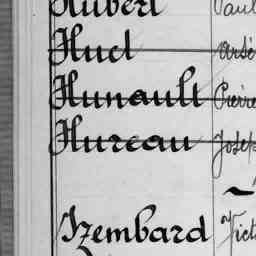 Hubert Paul
Huel Arsè
Hunault Pierre
Hureau Josep
Izembard Vict